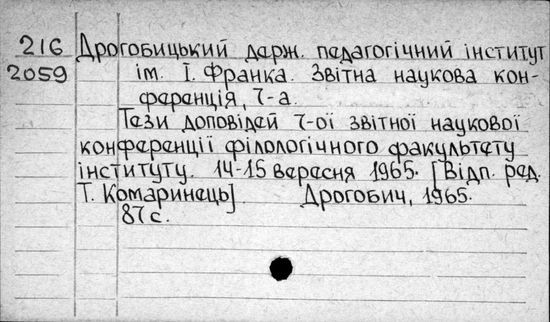 216 Дрогобицький держ. педагогічний інститут
2059 ім. І. Франка. Звітна наукова кон-
ференція, 7-а.
Тези доповідей 7-ої звітної наукової
конференції філологічного факультету
інституту. 14-15 вересня 1965. [Відп. ред.
Т. Комаринець]. Дрогобич, 1965.
87 с.